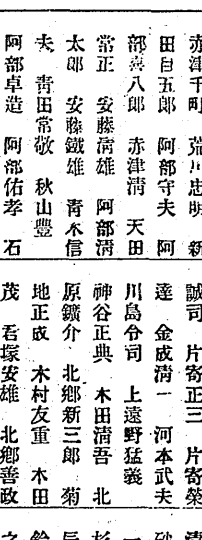 赤津千町　荒川忠明　新
田自五郎　阿部守夫　阿
部喜八郎　赤津清　天田
常正　安藤清雄　阿部清
太郎　安藤鐵雄　青木信
夫　青田常敬　秋山豊
阿部卓造　阿部佑孝　石
誠司　片寄正三　片寄榮
達　金成清一　河本武夫
川島令司　上遠野猛義
神谷正典　木田清吾　北
原鑛介　北郷新三郎　菊
地正成　木村友重　木田
茂　君塚安雄　北郷善政